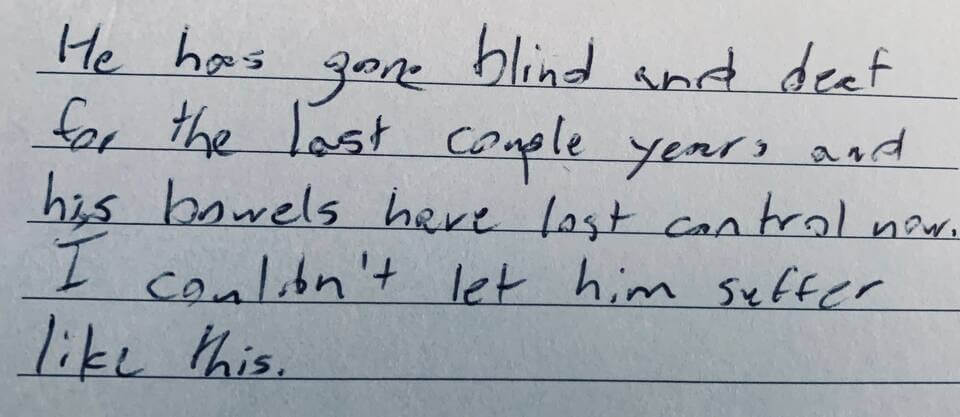 He has gone blind and deaf
for the last couple years and
his bowels have lost control now.
I couldn't let him suffer
like this.